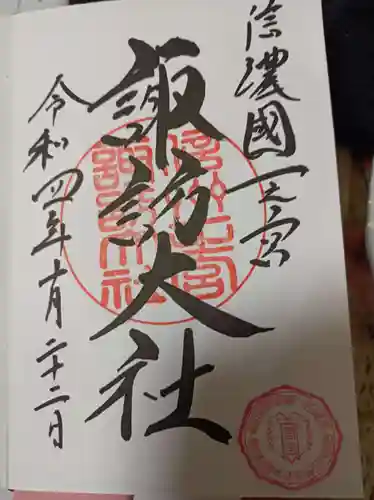 信濃國一之宮
諏訪大社
令和四年十月二十二日